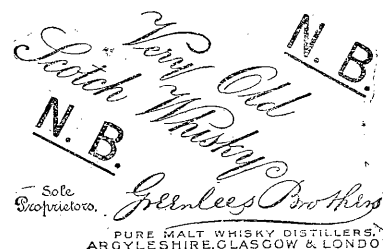 N. B.
Very Old
Scotch Whisky
N. B.
Sole
Proprietors.
Greenlees Brothers
PURE MALT WHISKY DISTILLERS.
ARGYLESHIRE, GLASGOW & LONDO